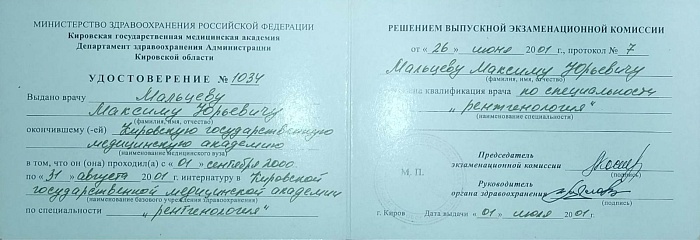 МИНИСТЕРСТВО ЗДРАВООХРАНЕНИЯ РОССИЙСКОЙ ФЕДЕРАЦИИ
Кировская государственная медицинская академия
Департамент здравоохранения Администрации
Кировской области
УДОСТОВЕРЕНИЕ № 1034
Выдано врачу Мальцеву
Максиму Юрьевичу
(фамилия, имя, отчество)
окончившему (-ей) Кировскую государственную
медицинскую академию
(наименование медицинского вуза)
в том, что он (она) проходил(а) с « 01 » сентября 2000
по « 31 » августа 2001 г. интернатуру в Кировской
государственной медицинской академии
(наименование базового учреждения здравоохранения)
по специальности „рентгенология"
РЕШЕНИЕМ ВЫПУСКНОЙ ЭКЗАМЕНАЦИОННОЙ КОМИССИИ
от « 26 » июня 2001 г., протокол № 7
Мальцеву Максиму Юрьевичу
(фамилия, имя, отчество)
на квалификация врача по специальности
„рентгенология"
(наименование специальности)
Председатель
экзаменационной комиссии
(подпись)
М. П.
Руководитель
органа здравоохранения
(подпись)
г. Киров Дата выдачи « 01 » июля 2001 г.